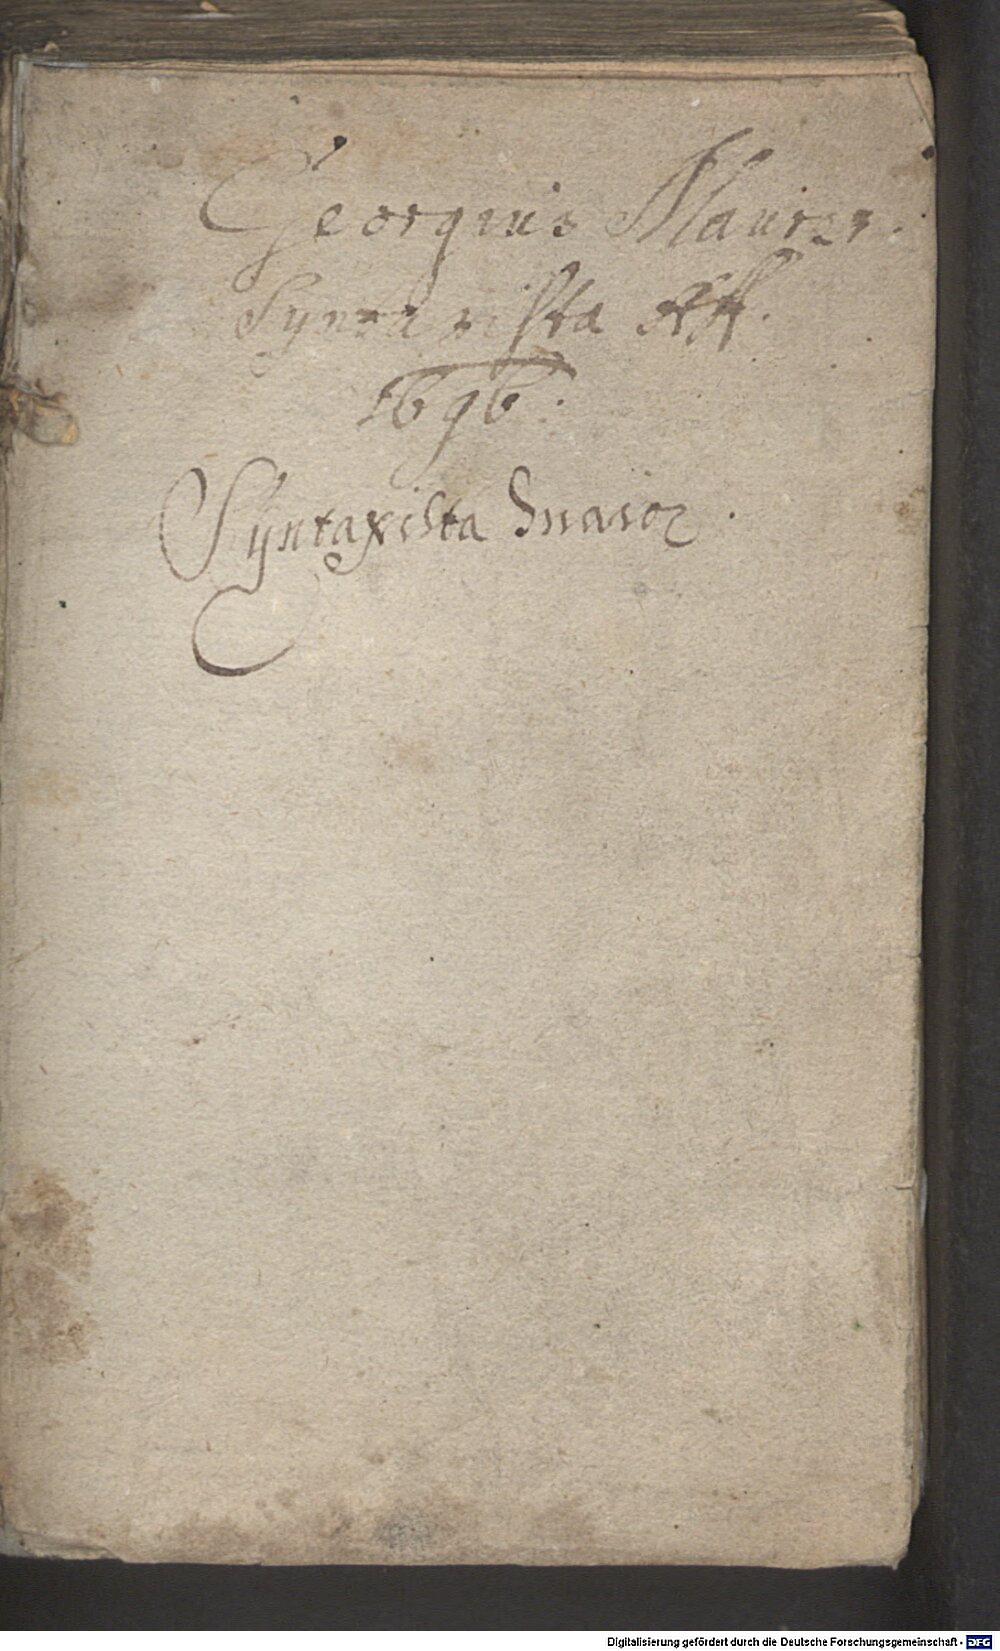 Georgius Maurer.
Syntaxista
1696.
Syntaxista maior.
Digitalisierung gefördert durch die Deutsche Forschungsgemeinschaft - DFG